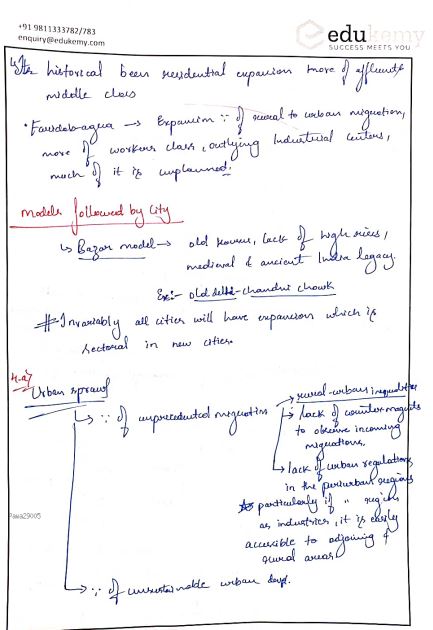 +91 9811333782/783
enquiry@edukemy.com
edukemy
SUCCESS MEETS YOU
↳ Its historical been residential expansion more of affluent &
middle class
• Faridabad → Expansion ∵ of rural to urban migration,
more of workers class, outlying Industrial Centers,
much of it is unplanned.
Models followed by City
↳ Bazar model → old houses, lack of high rises,
medieval & ancient India legacy.
Ex:- old delhi - chandni chowk
# Invariably all cities will have expansion which is
sectoral in new cities.
4.a)
Urban sprawl
→ rural-urban inequalities
↳ ∵ of unprecedented migration → lack of counter magnets
to observe incoming
migrations.
↳ lack of urban regulations
in the periurban regions
particularly if " region
as industries, it is easily
accessible to adjoining
rural areas
Pawa29005
↳ ∵ of unsustainable urban devp.